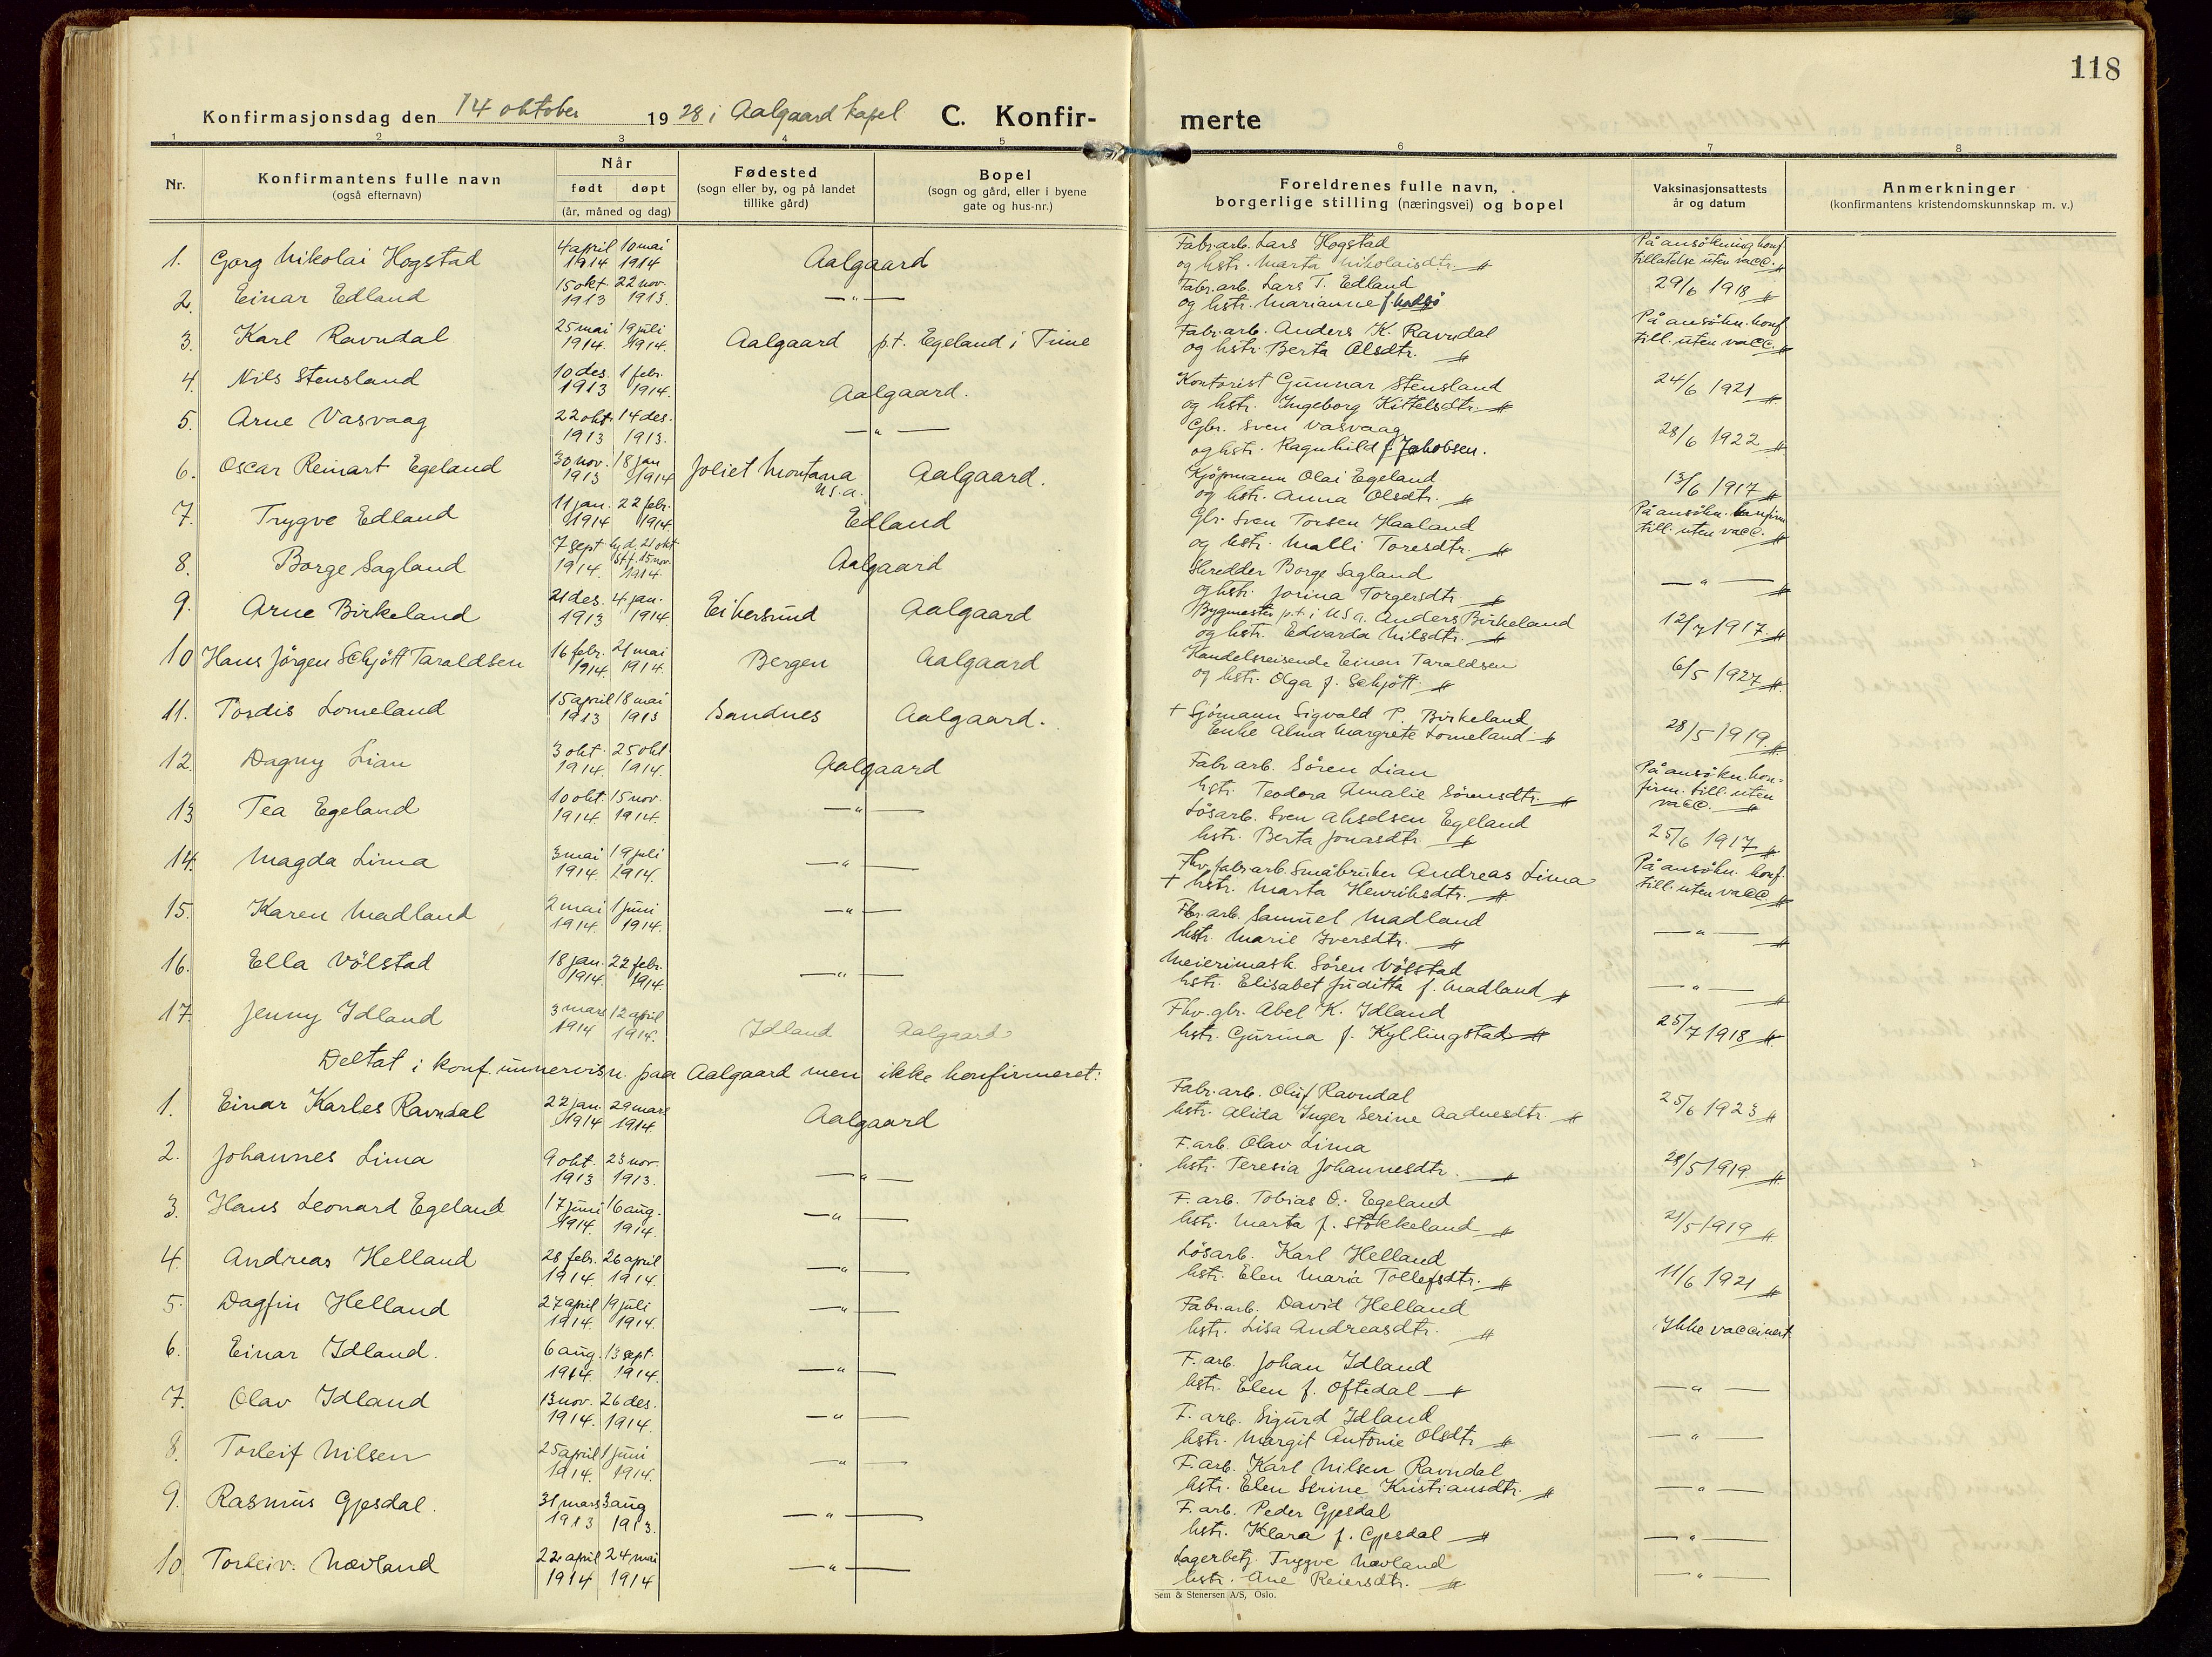 118
Konfirmasjonsdag den 14 oktober 1928 i Aalgaard kapel C. Konfir- merte
1 2 3 4 5 6 7 8
Nr.
Konfirmantens fulle navn
(også efternavn)
Når
født døpt
(år, måned og dag)
Fødested
(sogn eller by, og på landet
tillike gård)
Bopel
(sogn og gård, eller i byene
gate og hus-nr.)
Foreldrenes fulle navn,
borgerlige stilling (næringsvei) og bopel
Vaksinasjonsattests
år og datum
Anmerkninger
(konfirmantens kristendomskunnskap m. v.)
1. Georg Nikolai Hogstad 4 april 1914 10 mai 1914 Aalgaard
Fabr.arb. Lars Hogstad
og hstr. Marta Nikolaisdtr.
På ansökning konf.
tillatelse uten vacc.
2. Einar Edland 15 okt. 1913 22 nov. 1913. — " —
Fabr.arb. Lars T. Edland
og hstr. Marianne f.
29/6 1918
3. Karl Ravndal 25 mai 1914. 19 juli 1914. Aalgaard p.t. Egeland i Time
Fabr.arb. Anders K. Ravndal
og hstr. Berta Olsdtr.
På ansökn. konf.
till. uten vacc.
4. Nils Stensland 10 des. 1913 1 febr. 1914. Aalgaard.
Kontorist Gunnar Stensland
og hstr. Ingeborg Kittelsdtr.
24/6 1921
5. Arne Vasvaag 22 okt. 1913 14 des. 1913. — " —
Gbr. Sven Vasvaag
og hstr. Ragnhild f. Jakobsen.
28/6 1922
6. Oscar Reinart Egeland 30 nov. 1913 18 jan 1914 Joliet Montana U.S.A. Aalgaard.
Kjöpmann Olai Egeland
og hstr. Anna Olsdtr.
13/6 1917
7. Trygve Edland 11 jan. 1914 22 febr. 1914. Edland
Gbr. Sven Torsen Haaland
og hstr. Malli Toresdtr.
På ansökn. konfirm.
till. uten vacc.
8. Borge Sagland 7 sept. 1914. hj.d. 21 okt. st.f. 15 nov. 1914. Aalgaard
Skredder Borge Sagland
og hstr. Jorina Torgersdtr.
— " —
9. Arne Birkeland 21 des. 1913 4 jan. 1914 Eikersund Aalgaard
Bygmester p.t. i U.S.A. Anders Birkeland
og hstr. Edvarda Nilsdtr.
12/7 1917.
10 Hans Jörgen Schjött Taraldsen 16 febr. 1914. 21 mai 1914. Bergen Aalgaard
Handelsreisende Einar Taraldsen
og hstr. Olga f. Schjött.
6/5 1927
11. Tordis Lomeland 15 april 1913 18 mai 1913 Sandnes Aalgaard.
+ Sjömann Sigvald P. Birkeland
Enke Alma Margrete Lomeland
28/5 1919.
12. Dagny Lian 3 okt. 1914. 25 okt. 1914. Aalgaard
Fabr arb. Sören Lian
hstr. Teodora Amalie Sörensdtr.
På ansökn. kon-
firm. till. uten
vacc.
13 Tea Egeland 10 okt. 1914. 15 nov. 1914. — " —
Lösarb. Sven Akselsen Egeland
hstr. Berta Jonasdtr.
25/6 1917
14. Magda Lima 3 mai 1914. 19 juli 1914. — " —
Fhv. fabr.arb. Småbruker Andreas Lima
+ hstr. Marta Henriksdtr.
På ansökn. konf.
till. uten vacc
15. Karen Madland 2 mai 1914. 1 juni 1914. — " —
Fbr. arb. Samuel Madland
hstr. Marie Iversdtr.
— " —
16. Ella Völstad 18 jan. 1914. 22 febr. 1914. — " —
Meierimask. Sören Völstad
hstr. Elisabet Juditta f. Madland
— " —
17. Jenny Idland 3 mars 1914 12 april 1914. Idland Aalgaard
Fhv. gbr. Abel K. Idland
hstr. Gurina f. Kyllingstad
25/7 1918
Deltat i konf.unnervisn. paa Aalgaard men ikke konfirmeret:
1. Einar Karles Ravndal 22 jan. 1914 29 mars 1914. Aalgaard
Fabr.arb. Oluf Ravndal
hstr. Alida Inger Serine Aadnesdtr.
25/6 1923
2. Johannes Lima 9 okt. 1913 23 nov. 1913. — " —
F. arb. Olav Lima
hstr. Teresia Johannesdtr.
28/5 1919
3. Hans Leonard Egeland 17 juni 1914. 16 aug. 1914. — " —
F. arb. Tobias O. Egeland
hstr. Marta f. Stökkeland
21/5 1919
4. Andreas Helland 28 febr. 1914. 26 april 1914. — " —
Lösarb. Karl Helland
hstr. Elen Maria Tollefsdtr.
11/6 1921
5. Dagfin Helland 27 april 1914. 19 juli 1914. — " —
Fabr.arb. David Helland
hstr. Lisa Andreasdtr.
Ikke vaccinert
6. Einar Idland. 6 aug. 1914. 13 sept. 1914. — " —
F. arb. Johan Idland
hstr. Elen f. Oftedal
— " —
7. Olav Idland 13 nov. 1914. 26 des. 1914. — " —
F. arb. Sigurd Idland
hstr. Margit Antonie Olsdtr
— " —
8. Torleif Nilsen 25 april 1914. 1 juni 1914. — " —
F. arb. Karl Nilsen Ravndal
hstr. Elen Serine Kristiansdtr.
— " —
9. Rasmus Gjesdal. 31 mars 1913 3 aug 1913. — " —
F. arb. Peder Gjesdal
hstr. Klara f. Gjesdal
— " —
10. Torleiv. Nævland 22 april 1914 24 mai 1914 — " —
Lagerbetj. Trygve Nævland
hstr. Ane Reiersdtr.
— " —
Sem & Stenersen A/S, Oslo.